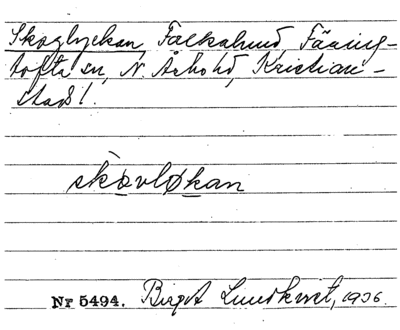 Skoglyckan, Falkalund, Färing-
tofta sn, N. Åsbohd, Kristian-
stads l.
skovløkan
Nr 5494. Birgit Lundkvist, 1936.